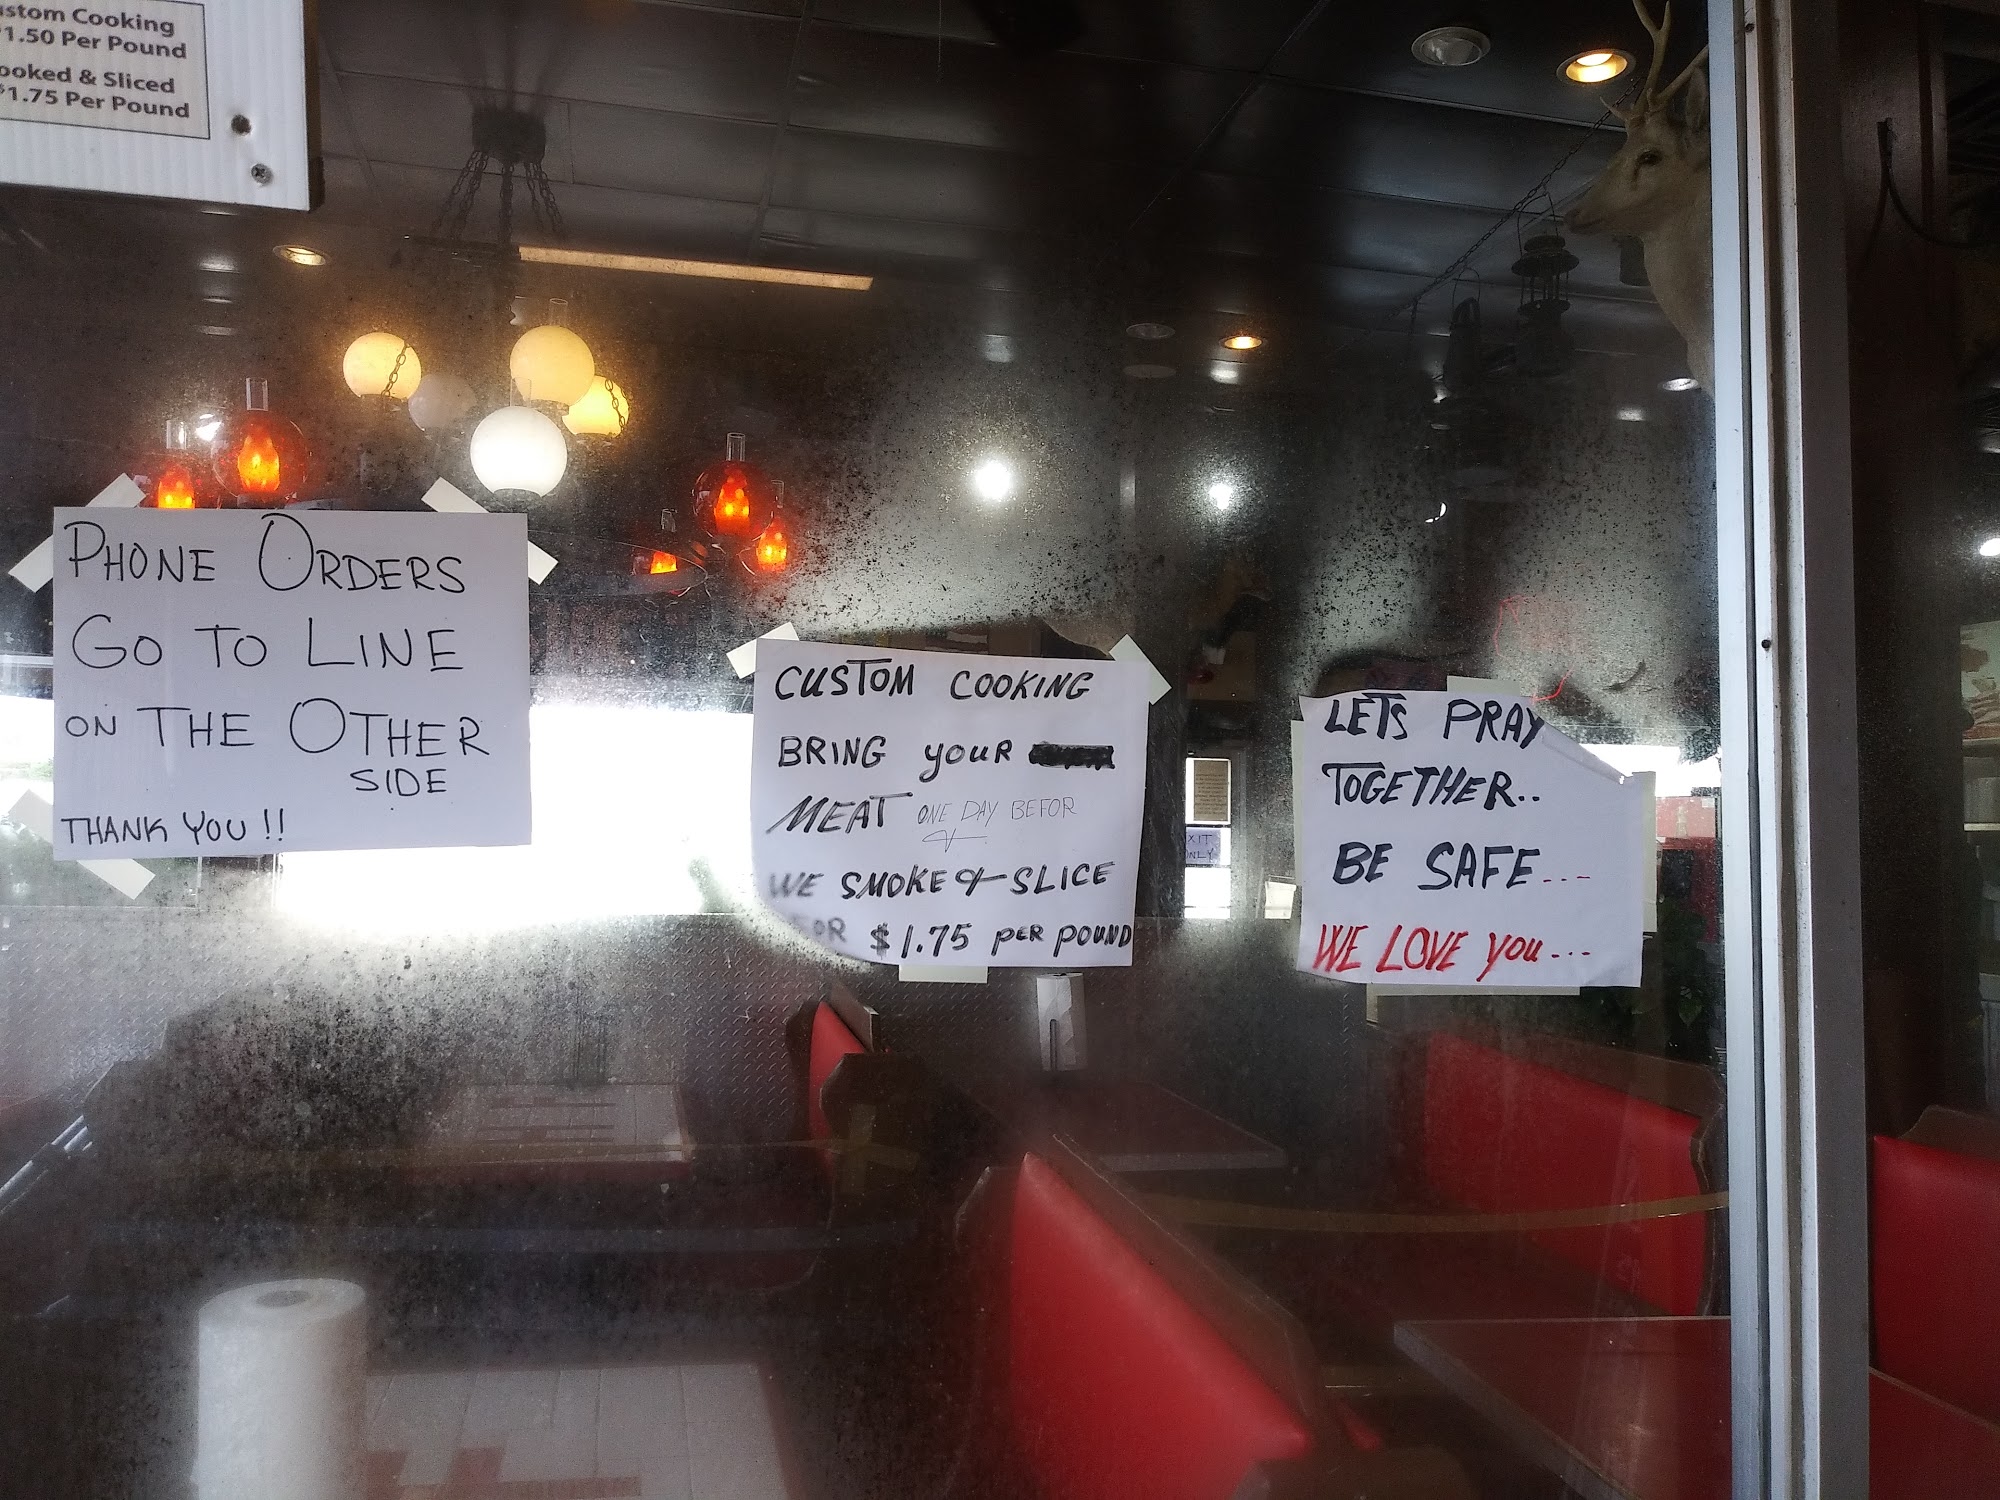 stom Cooking
$1.50 Per Pound
ooked & Sliced
$1.75 Per Pound
PHONE ORDERS
GO TO LINE
ON THE OTHER
SIDE
THANK YOU !!
CUSTOM COOKING
BRING your
MEAT ONE DAY BEFOR
&
WE SMOKE & SLICE
FOR $1.75 PER POUND
EXIT
ONLY
LETS PRAY
TOGETHER..
BE SAFE....
WE LOVE you...